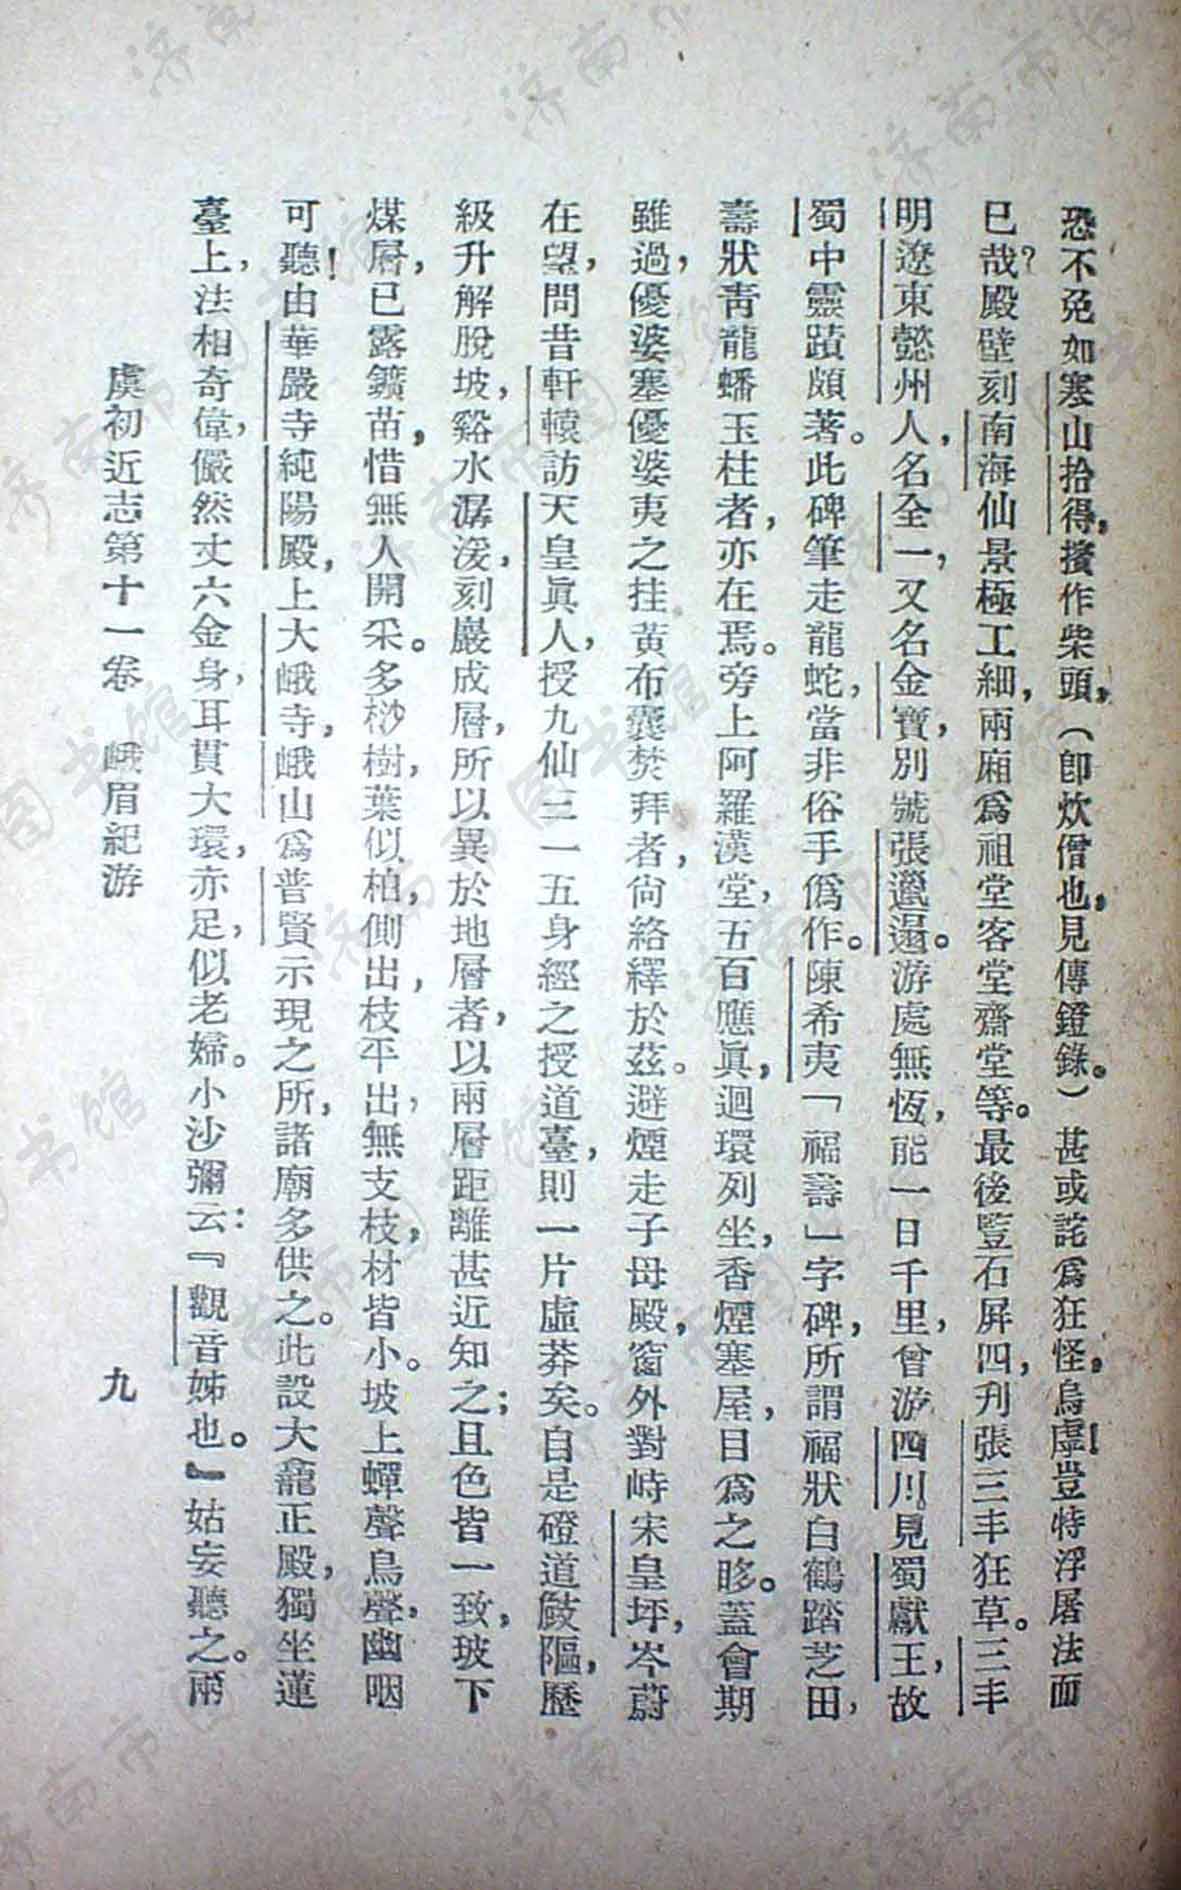 恐不免如寒山拾得，擯作柴頭，（卽炊僧也，見傳鐙錄。）甚或詫爲狂怪，烏虖！豈特浮屠法而
已哉？殿壁刻南海仙景極工細，兩廂爲祖堂客堂齋堂等。最後豎石屏四，刋張三丰狂草。三丰
明遼東懿州人，名全一，又名金寶，別號張邋遢。游處無恆，能一日千里，曾游四川，見蜀獻王，故
蜀中靈蹟頗著。此碑筆走龍蛇，當非俗手僞作。陳希夷「福壽」字碑，所謂福狀白鶴踏芝田，
壽狀靑龍蟠玉柱者，亦在焉。旁上阿羅漢堂，五百應眞，迴環列坐，香煙塞屋，目爲之眵。蓋會期
雖過，優婆塞優婆夷之挂黃布囊焚拜者，尙絡繹於茲。避煙走子母殿，窗外對峙宋皇坪，岑蔚
在望，問昔軒轅訪天皇眞人，授九仙三一五身經之授道臺，則一片虛莽矣。自是磴道敧𨻶，歷
級升解脫坡，谿水潺湲，刻巖成層，所以異於地層者，以兩層距離甚近知之；且色皆一致，玻下
煤層，已露鑛苗，惜無人開采。多桫樹，葉似柏，側出，枝平出，無支枝，材皆小。坡上蟬聲鳥聲，幽咽
可聽！由華嚴寺純陽殿，上大峨寺，峨山爲普賢示現之所，諸廟多供之。此設大龕正殿，獨坐蓮
臺上，法相奇偉，儼然丈六金身，耳貫大環，亦足，似老婦。小沙彌云：『觀音姊也。』姑妄聽之。兩
虞初近志第十一卷　峨眉紀游　九
济南市图书馆